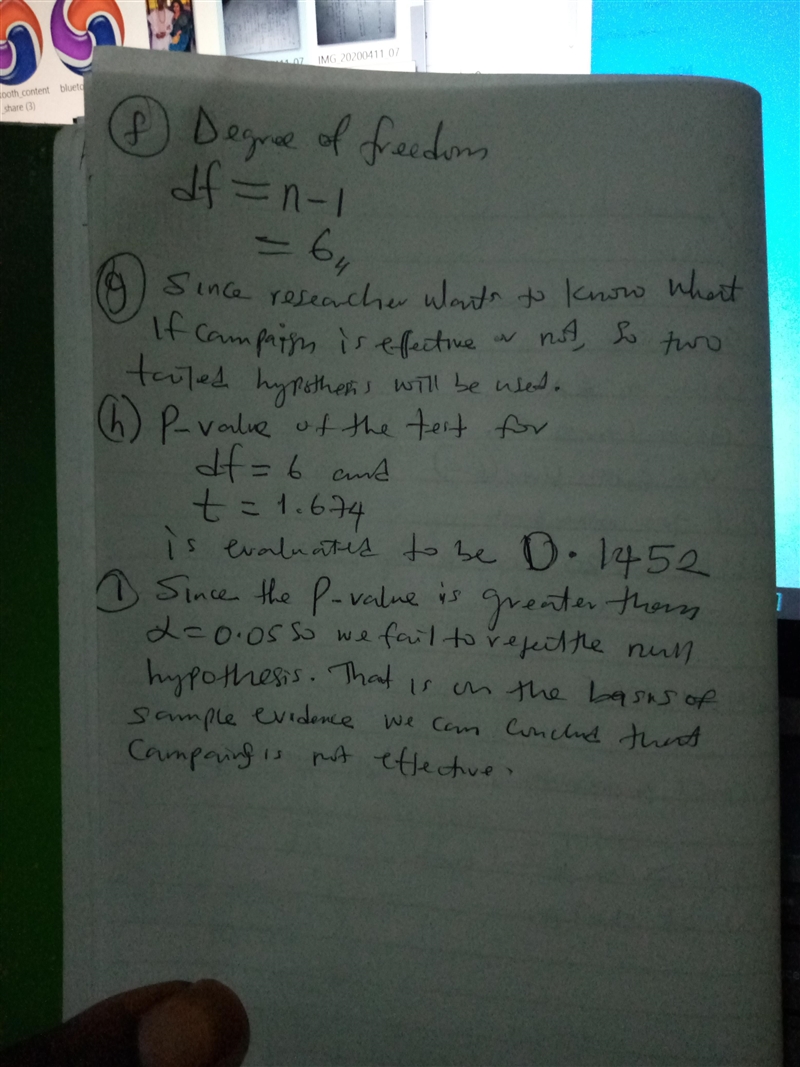 ooth_content
_share (3)
blueto
11-07
IMG_20200411_07
(f) Degree of freedom
df = n-1
= 6
(g) Since researcher wants to know what
if campaign is effective or not, so two
tailed hypothesis will be used.
(h) P-value of the test for
df = 6 and
t = 1.674
is evaluated to be 0.1452
(i) Since the P-value is greater than
α = 0.05 so we fail to reject the null
hypothesis. That is on the basis of
sample evidence we can conclud that
Campaing is not effective.